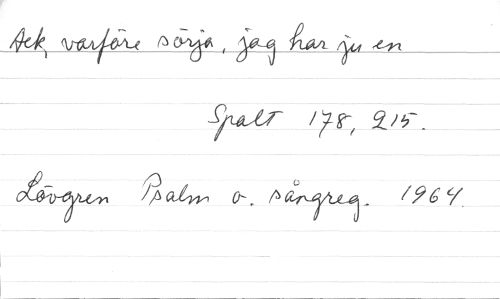 Ack, varföre sörja, jag har ju en
Spalt 178, 215.
Lövgren Psalm o. sångreg. 1964.